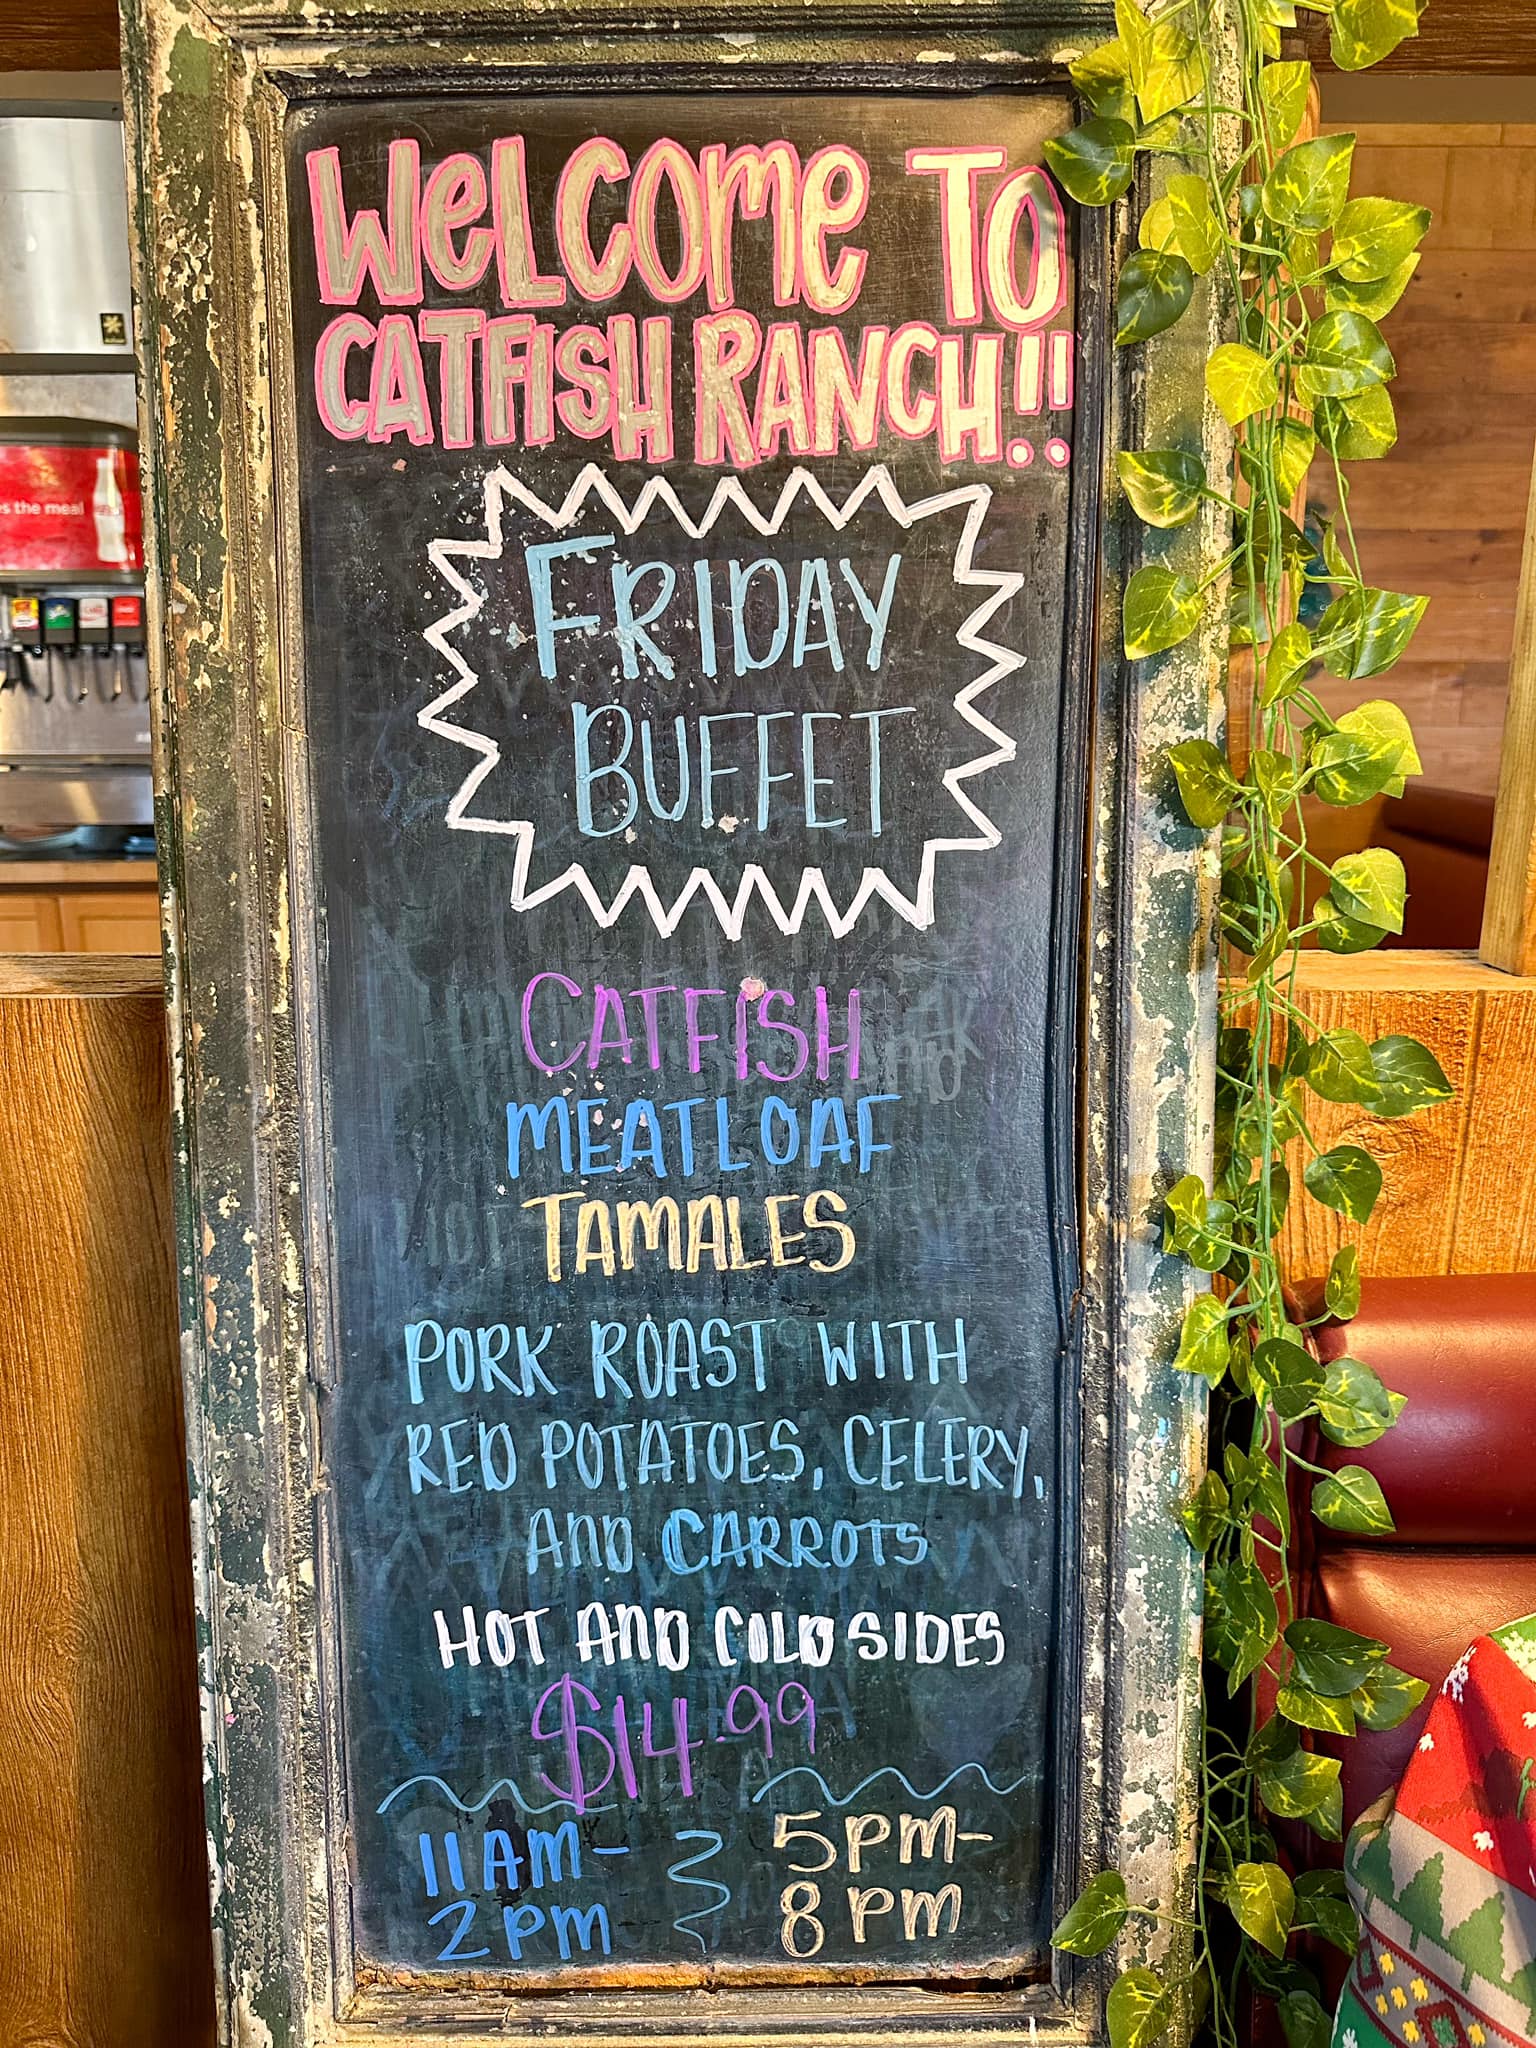 WELCOME TO
CATFISH RANCH!!
FRIDAY
BUFFET
CATFISH
MEATLOAF
TAMALES
PORK ROAST WITH
RED POTATOES, CELERY,
AND CARROTS
HOT AND COLD SIDES
$14.99
11AM-
2PM
5PM-
8PM
es the meal